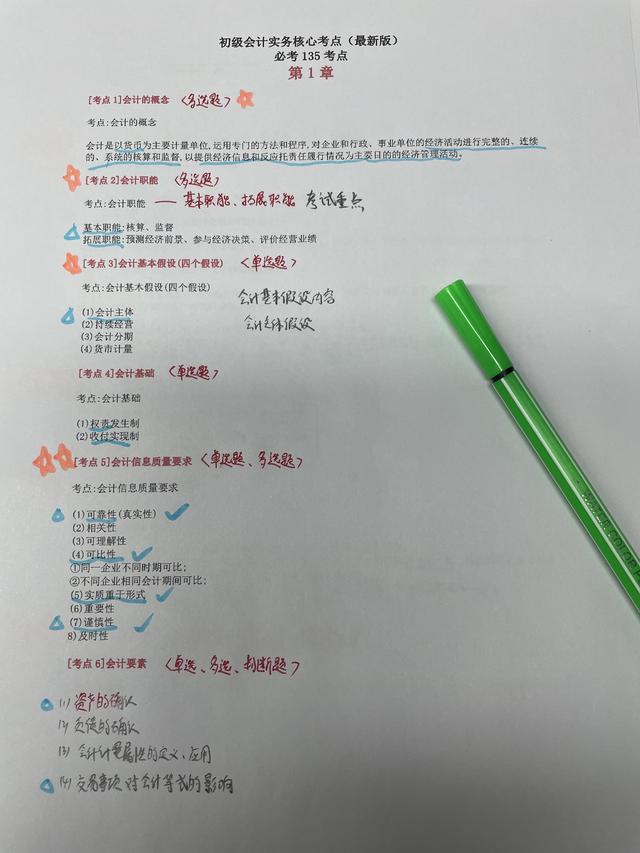 初级会计实务核心考点（最新版）
必考135考点
第1章
[考点1]会计的概念 〈多选题〉
考点:会计的概念
会计是以货币为主要计量单位,运用专门的方法和程序,对企业和行政、事业单位的经济活动进行完整的、连续
的、系统的核算和监督,以提供经济信息和反应托责任履行情况为主要目的的经济管理活动。
[考点2]会计职能 〈多选题〉
考点:会计职能 —— 基本职能、拓展职能 考试重点
基本职能:核算、监督
拓展职能:预测经济前景、参与经济决策、评价经营业绩
[考点3]会计基本假设(四个假设) 〈单选题〉
考点:会计基本假设(四个假设) 会计基本假设内容
(1)会计主体 会计主体假设
(2)持续经营
(3)会计分期
(4)货币计量
[考点4]会计基础 〈单选题〉
考点:会计基础
(1)权责发生制
(2)收付实现制
[考点5]会计信息质量要求 〈单选题、多选题〉
考点:会计信息质量要求
(1)可靠性(真实性)
(2)相关性
(3)可理解性
(4)可比性
①同一企业不同时期可比;
②不同企业相同会计期间可比;
(5)实质重于形式
(6)重要性
(7)谨慎性
8)及时性
[考点6]会计要素 〈单选、多选、判断题〉
(1) 资产的确认
(2) 负债的确认
(3) 会计计量属性的定义、应用
(4) 交易事项对会计等式的影响